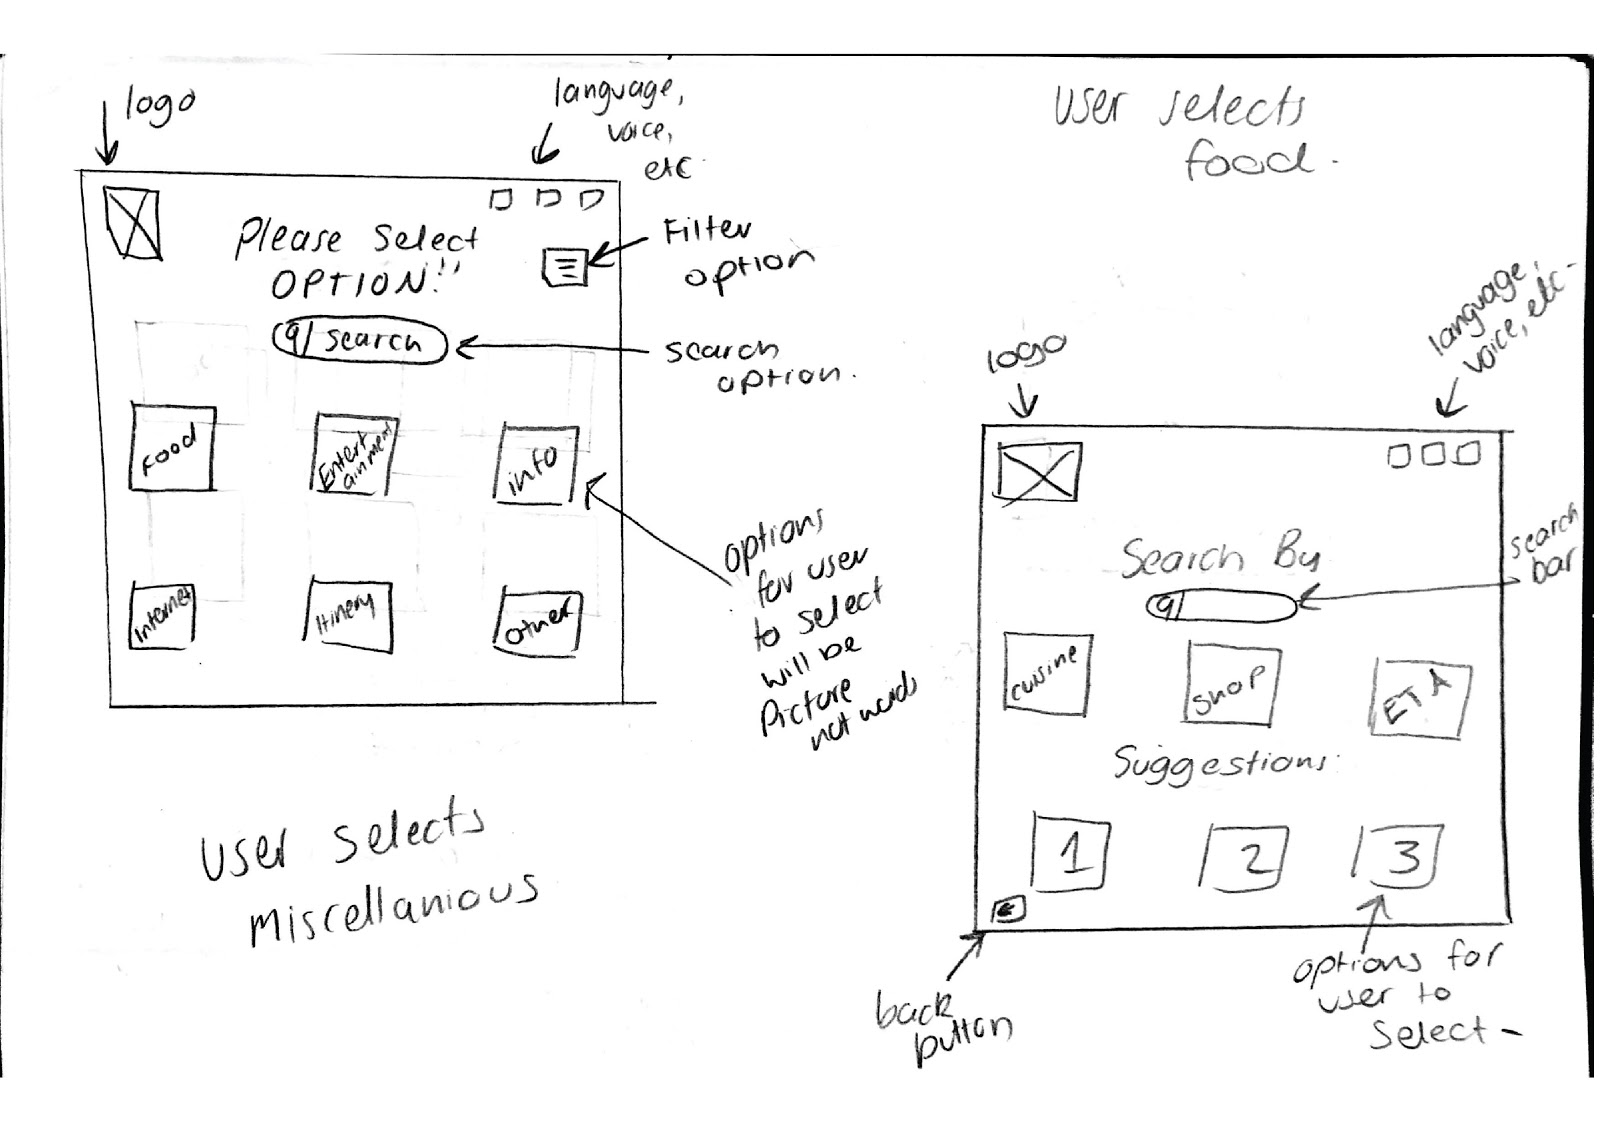 logo
language,
voice,
etc.
Please Select
OPTION!!
Filter
option
search
search
option.
Food
Entert
ainment
info
options
for user
to select
will be
Picture
not words
Internet
Itinery
Other
User selects
miscellanious
User selects
food.
logo
language,
voice, etc-
Search By
search
bar
cuisine
shop
ETA
Suggestions:
1
2
3
back
button
options for
user to
select -